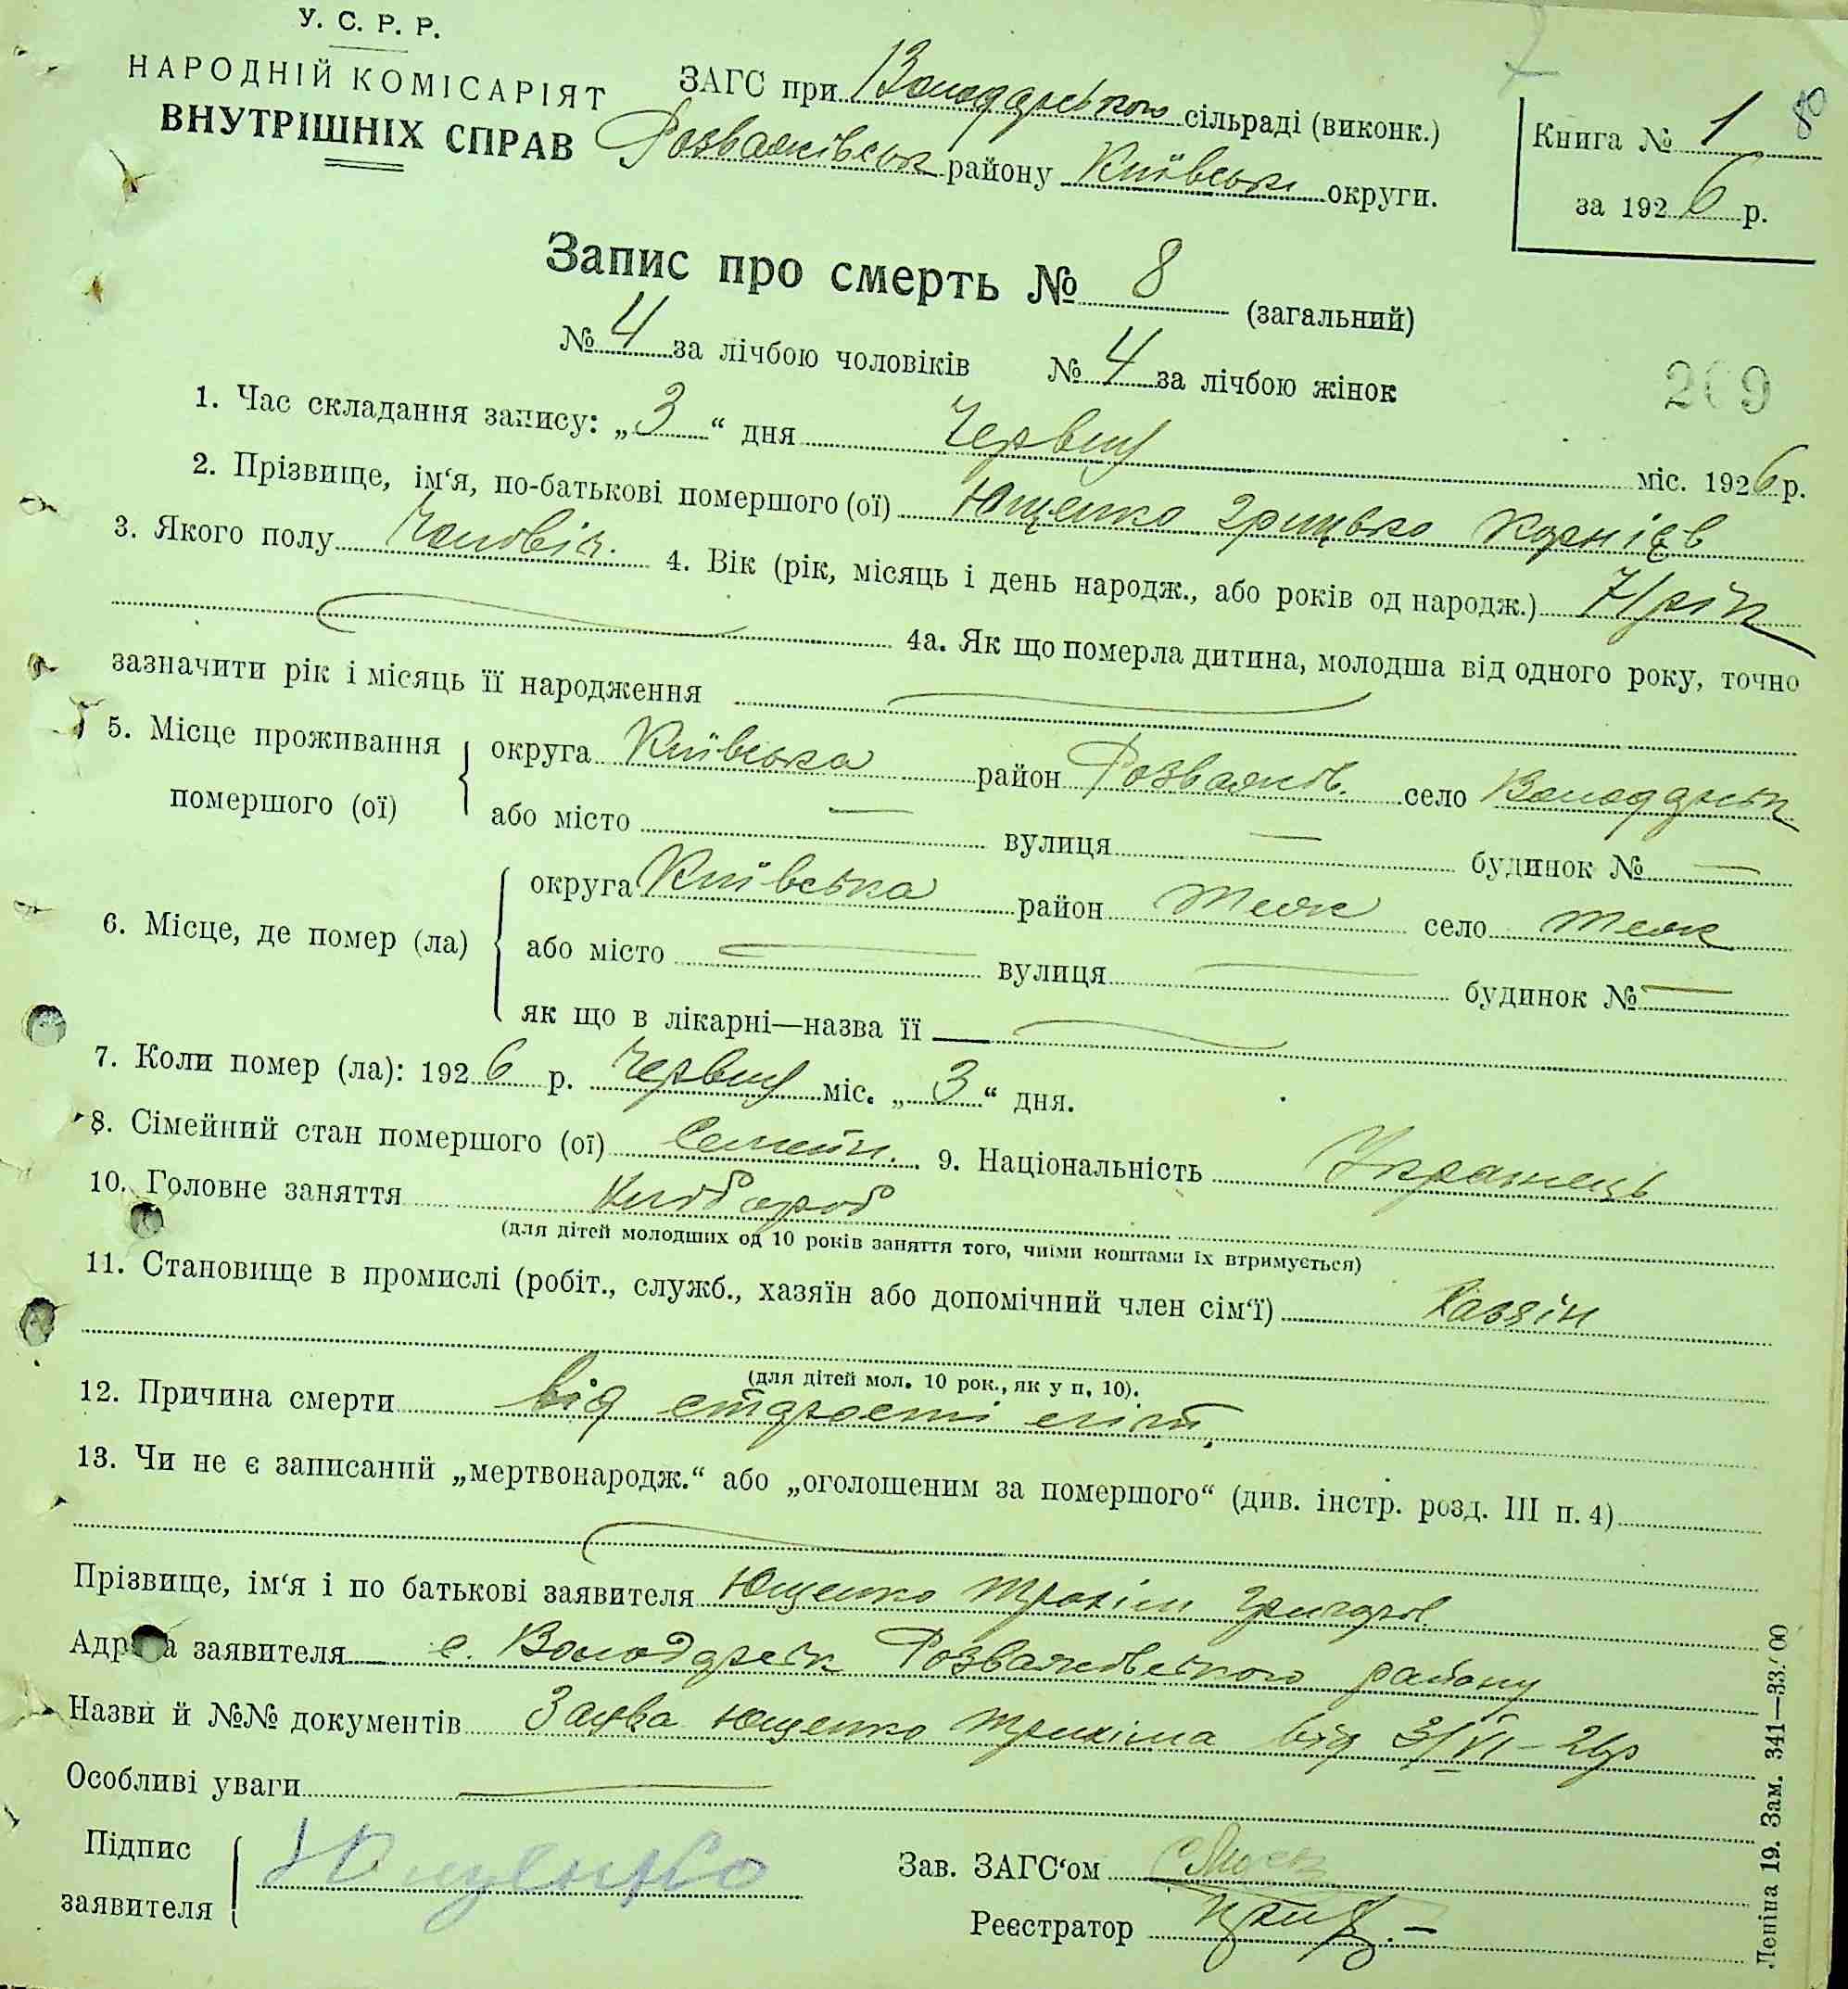 У. С. Р. Р.
НАРОДНІЙ КОМІСАРІЯТ
ВНУТРІШНІХ СПРАВ
ЗАГС при Володарською сільраді (виконк.)
Розважівськ району Київськ округи.
Книга № 1 80
за 1926 р.
Запис про смерть № 8 (загальний)
№ 4 за лічбою чоловіків № 4 за лічбою жінок
209
1. Час складання запису: „3“ дня Червця міс. 1926 р.
2. Прізвище, ім‘я, по-батькові помершого (ої) Ющенко Грицько Корнієв
3. Якого полу Чоловік. 4. Вік (рік, місяць і день народж., або років од народж.) 71 рік
4а. Як що померла дитина, молодша від одного року, точно
зазначити рік і місяць її народження
5. Місце проживання помершого (ої) округа Київська район Розважів. село Володарськ
або місто — вулиця — будинок № —
6. Місце, де помер (ла) округа Київська район Теж село Теж
або місто — вулиця — будинок № —
як що в лікарні—назва її
7. Коли помер (ла): 1926 р. Червця міс. „3“ дня.
8. Сімейний стан помершого (ої) Семейн. 9. Національність Українець
10. Головне заняття Хлібороб
(для дітей молодших од 10 років заняття того, чиїми коштами їх втримується)
11. Становище в промислі (робіт., служб., хазяїн або допомічний член сім‘ї) Хазяін
(для дітей мол. 10 рок., як у п. 10).
12. Причина смерти від старости літ,
13. Чи не є записаний „мертвонародж.“ або „оголошеним за помершого“ (див. інстр. розд. III п. 4)
Прізвище, ім‘я і по батькові заявителя Ющенко Трохім Григоров.
Адреса заявителя с. Володарськ Розважовського району
Назви й №№ документів Заява Ющенко Трихіма від 3/VI – 26р
Особливі уваги
Підпис заявителя Ющенко
Зав. ЗАГС‘ом
Реєстратор
Леніна 19. Зам. 341—33.000